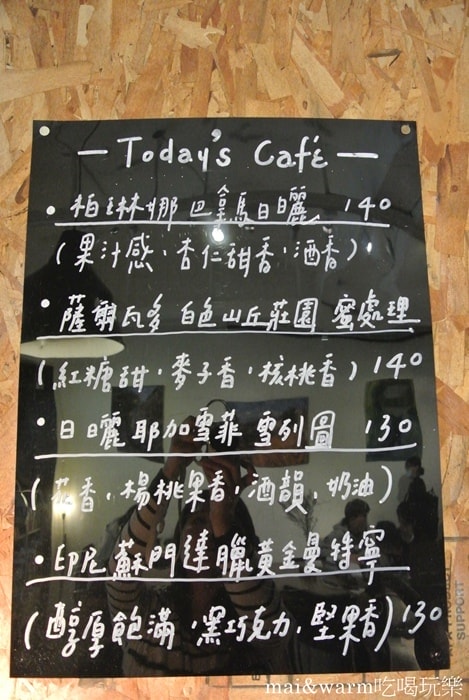 —Today's Café—
• 柏林娜 巴拿馬日曬 140
(果汁感,杏仁甜香,酒香)
• 薩爾瓦多 白色山丘莊園 蜜處理
(紅糖甜,麥子香,核桃香) 140
• 日曬 耶加雪菲 雪列圖 130
(花香,楊桃果香,酒韻,奶油)
• 印尼 蘇門達臘黃金曼特寧
(醇厚飽滿,黑巧克力,堅果香) 130
SUPPORT
mai&warm吃喝玩樂